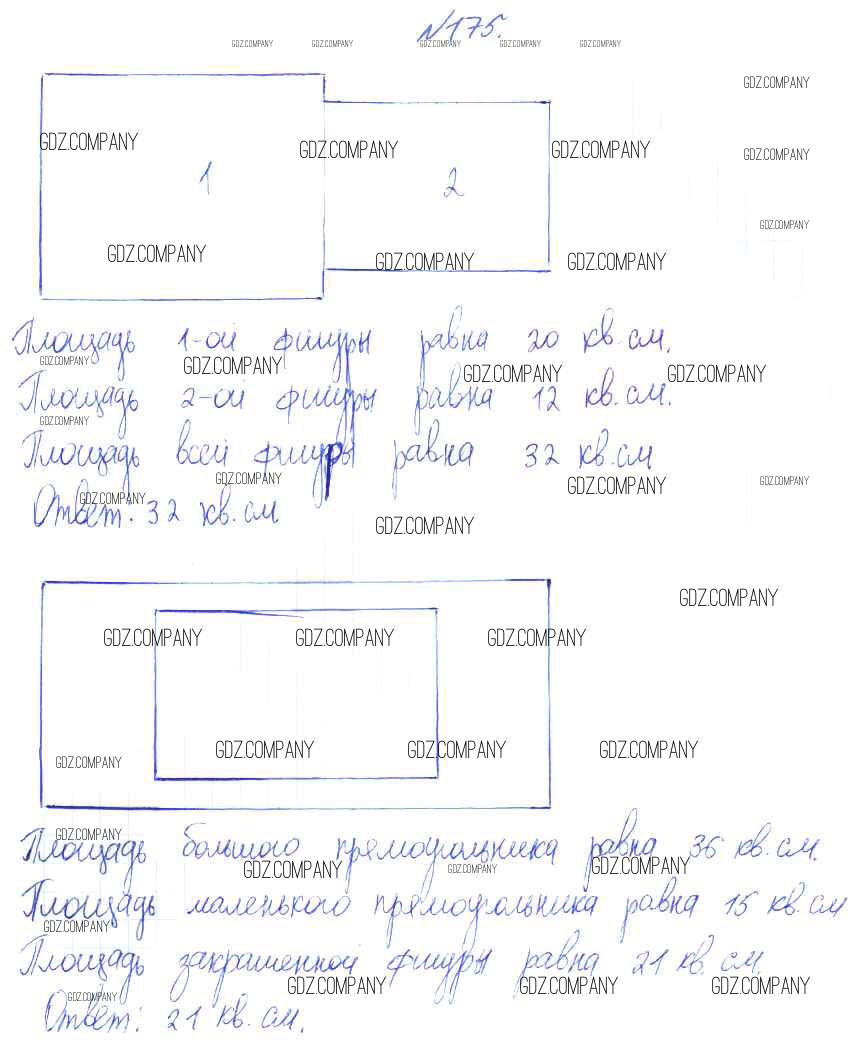 №175.
GDZ.COMPANY GDZ.COMPANY GDZ.COMPANY GDZ.COMPANY GDZ.COMPANY
GDZ.COMPANY
GDZ.COMPANY GDZ.COMPANY GDZ.COMPANY GDZ.COMPANY
1 2
GDZ.COMPANY
GDZ.COMPANY GDZ.COMPANY GDZ.COMPANY
Площадь 1-ой фигуры равна 20 кв см.
GDZ.COMPANY GDZ.COMPANY GDZ.COMPANY GDZ.COMPANY
Площадь 2-ой фигуры равна 12 кв.см.
GDZ.COMPANY
Площадь всей фигуры равна 32 кв.см
GDZ.COMPANY GDZ.COMPANY GDZ.COMPANY
GDZ.COMPANY
Ответ. 32 кв.см
GDZ.COMPANY
GDZ.COMPANY
GDZ.COMPANY GDZ.COMPANY GDZ.COMPANY
GDZ.COMPANY GDZ.COMPANY GDZ.COMPANY GDZ.COMPANY
GDZ.COMPANY
Площадь большого прямоугольника равна 36 кв.см.
GDZ.COMPANY GDZ.COMPANY GDZ.COMPANY
Площадь маленького прямоугольника равна 15 кв.см
GDZ.COMPANY
Площадь закрашенной фигуры равна 21 кв. см.
GDZ.COMPANY GDZ.COMPANY GDZ.COMPANY GDZ.COMPANY
Ответ: 21 кв.см.